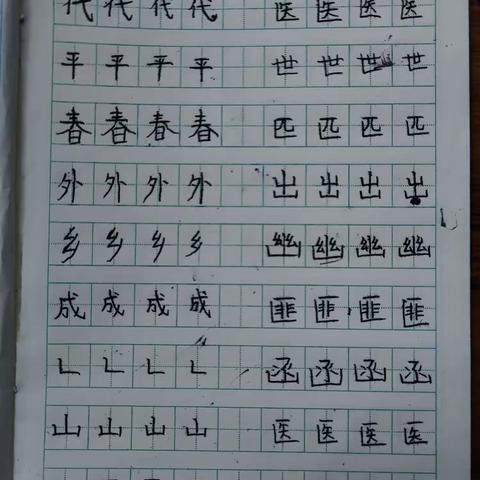 代代代代 医医医医
平平平平 世世世世
春春春春 匹匹匹匹
外外外外 出出出出
乡乡乡乡 幽幽幽幽
成成成成 匪匪匪匪
𠃊𠃊𠃊𠃊 函函函函
山山山山 医医医医